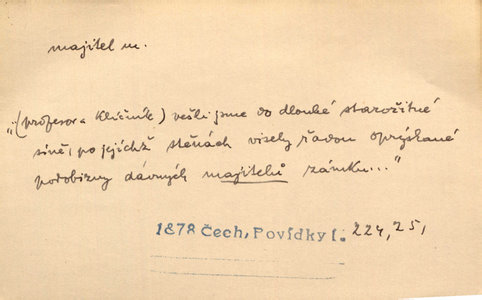 majitel m.
„(profesor a klíčník) vešli jsme do dlouhé starožitné
síně, po jejíchž stěnách visely řadou oprýskané
podobizny dávných majitelů zámku..."
1878 Čech, Povídky I. 224, 25,